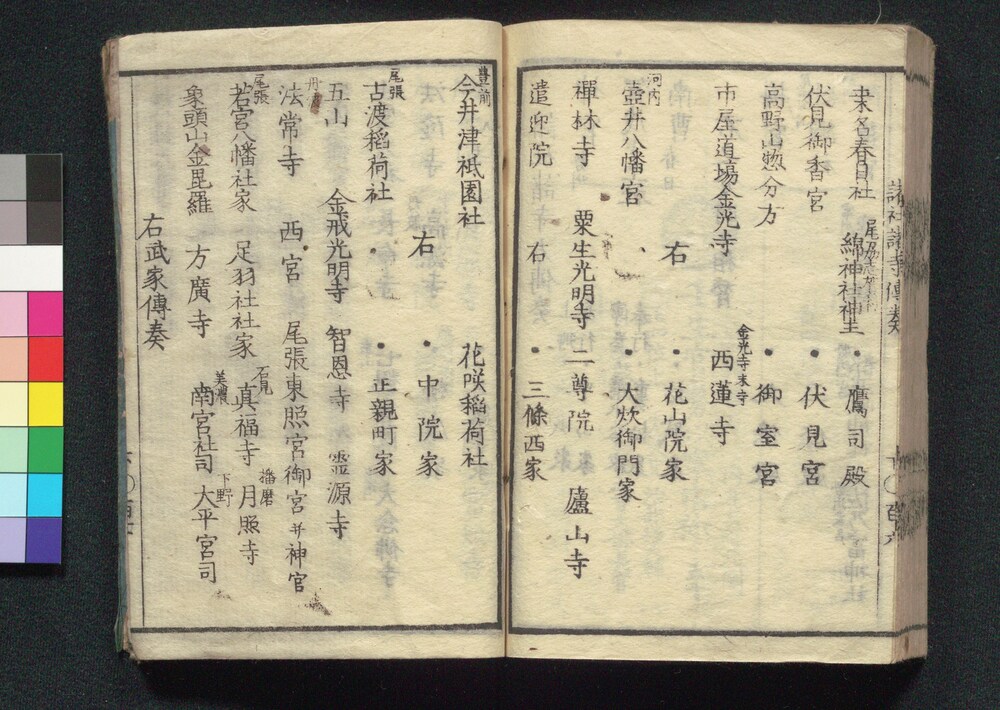 諸社諸寺傳奏
桒名春日社 綿神社神主 ・鷹司殿
伏見御香宮 ・伏見宮
高野山惣分方 ・御室宮
市屋道場金光寺 金光寺末寺 西蓮寺
右 ・花山院家
河内 壺井八幡宮 ・大炊御門家
禪林寺 粟生光明寺 二尊院 廬山寺
遣迎院 右 ・三條西家
豊前 今井津祇園社 花咲稲荷社
右 ・中院家
尾張 古渡稲荷社 ・正親町家
五山 金戒光明寺 智恩寺 霊源寺
法常寺 西宮 尾張東照宮御宮并神官
尾張 若宮八幡社家 足羽社社家 石見 真福寺 播磨 月照寺
象頭山金毘羅 方廣寺 美濃 南宮社司 下野 大平宮司
右武家傳奏